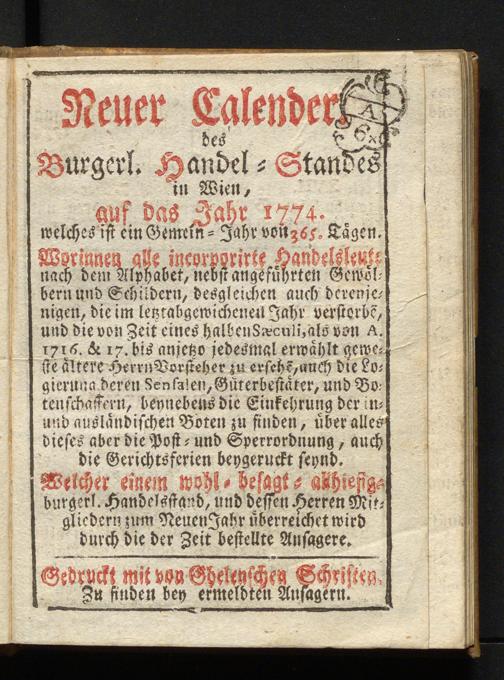 Neuer Calender,
des
Burgerl. Handel-Standes
in Wien,
auf das Jahr 1774.
welches ist ein Gemein-Jahr von 365. Tägen.
Worinnen alle incorporirte Handelsleute
nach dem Alphabet, nebst angeführten Gewöl-
bern und Schildern, desgleichen auch derenje-
nigen, die im letztabgewichenen Jahr verstorbē,
und die von Zeit eines halben Sæculi, als von A.
1716. & 17. bis anjetzo jedesmal erwählt gewe-
ste ältere Herrn Vorsteher zu ersehē, auch die Lo-
gierung deren Sensalen, Güterbestäter, und Bo-
tenschaffern, beynebens die Einkehrung der in-
und ausländischen Boten zu finden, über alles
dieses aber die Post- und Sperrordnung, auch
die Gerichtsferien beygeruckt seynd.
Welcher einem wohl-besagt-allhiesig-
burgerl. Handelsstand, und dessen Herren Mit-
gliedern zum Neuen Jahr überreichet wird
durch die der Zeit bestellte Ansagere.
Gedruckt mit von Ghelenschen Schriften.
Zu finden bey ermeldten Ansagern.
A
6 x